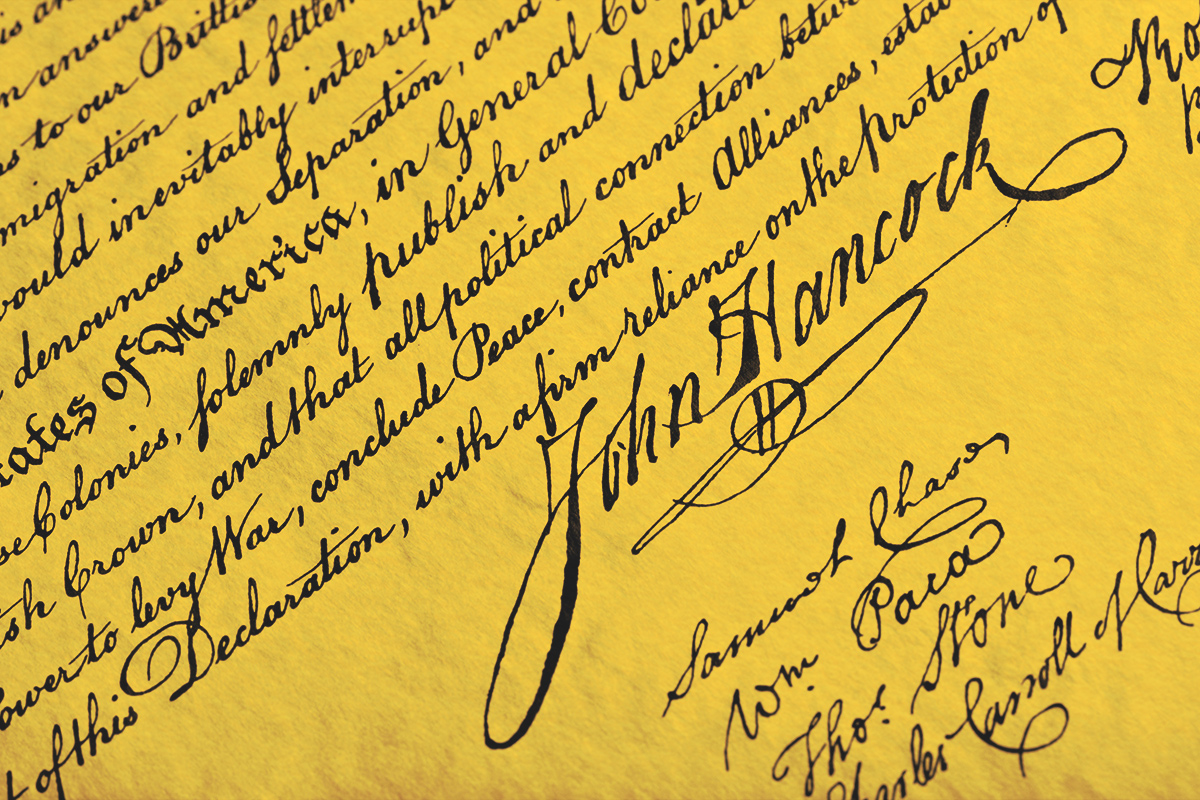 is an
n answere
ns to our Brittis
migration and fettlem
would inevitably interrupt
denounces our Separation, and
tates of America, in General Co
se Colonies, folemnly publish and declar
ish Crown, and that all political connection betw
ower to levy War, conclude Peace, contract Alliances, estab
of this Declaration, with a firm reliance on the protection of
John Hancock
Samuel Chase
Wm. Paca
Thos. Stone
Charles Carroll of Carr